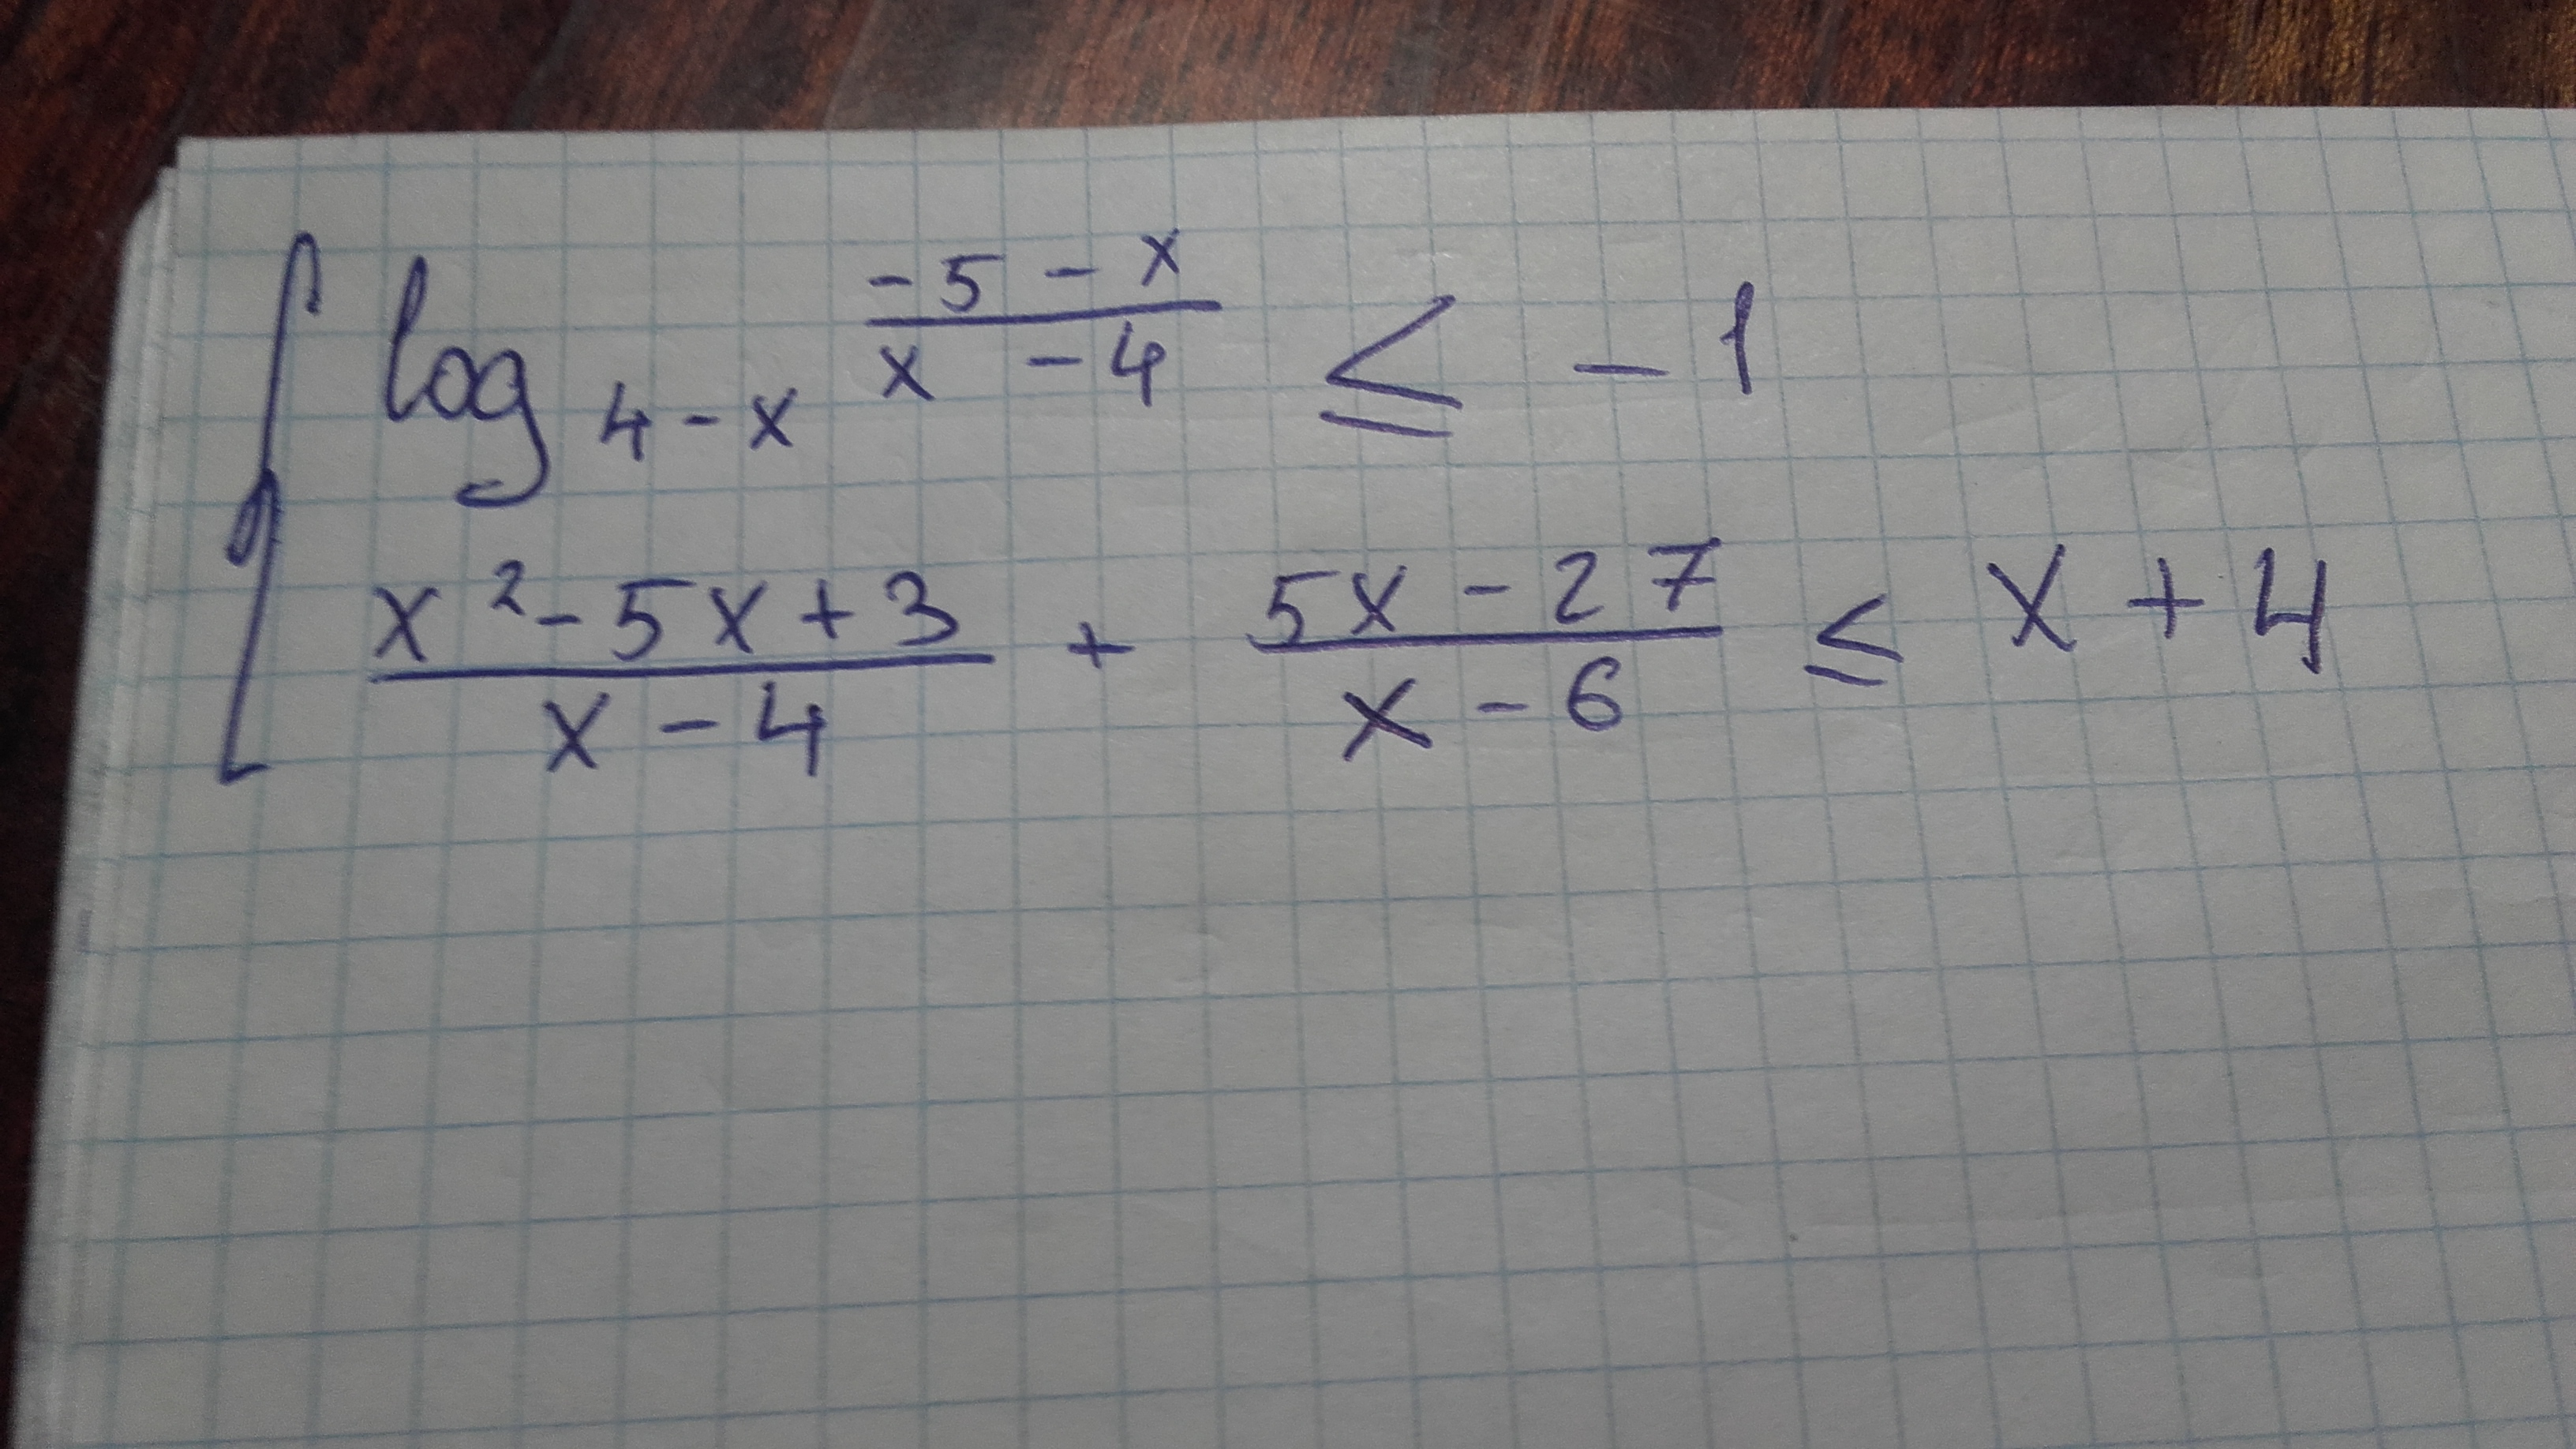 { log_{4-x} \frac{-5-x}{x-4} ≤ -1
\frac{x²-5x+3}{x-4} + \frac{5x-27}{x-6} ≤ x+4